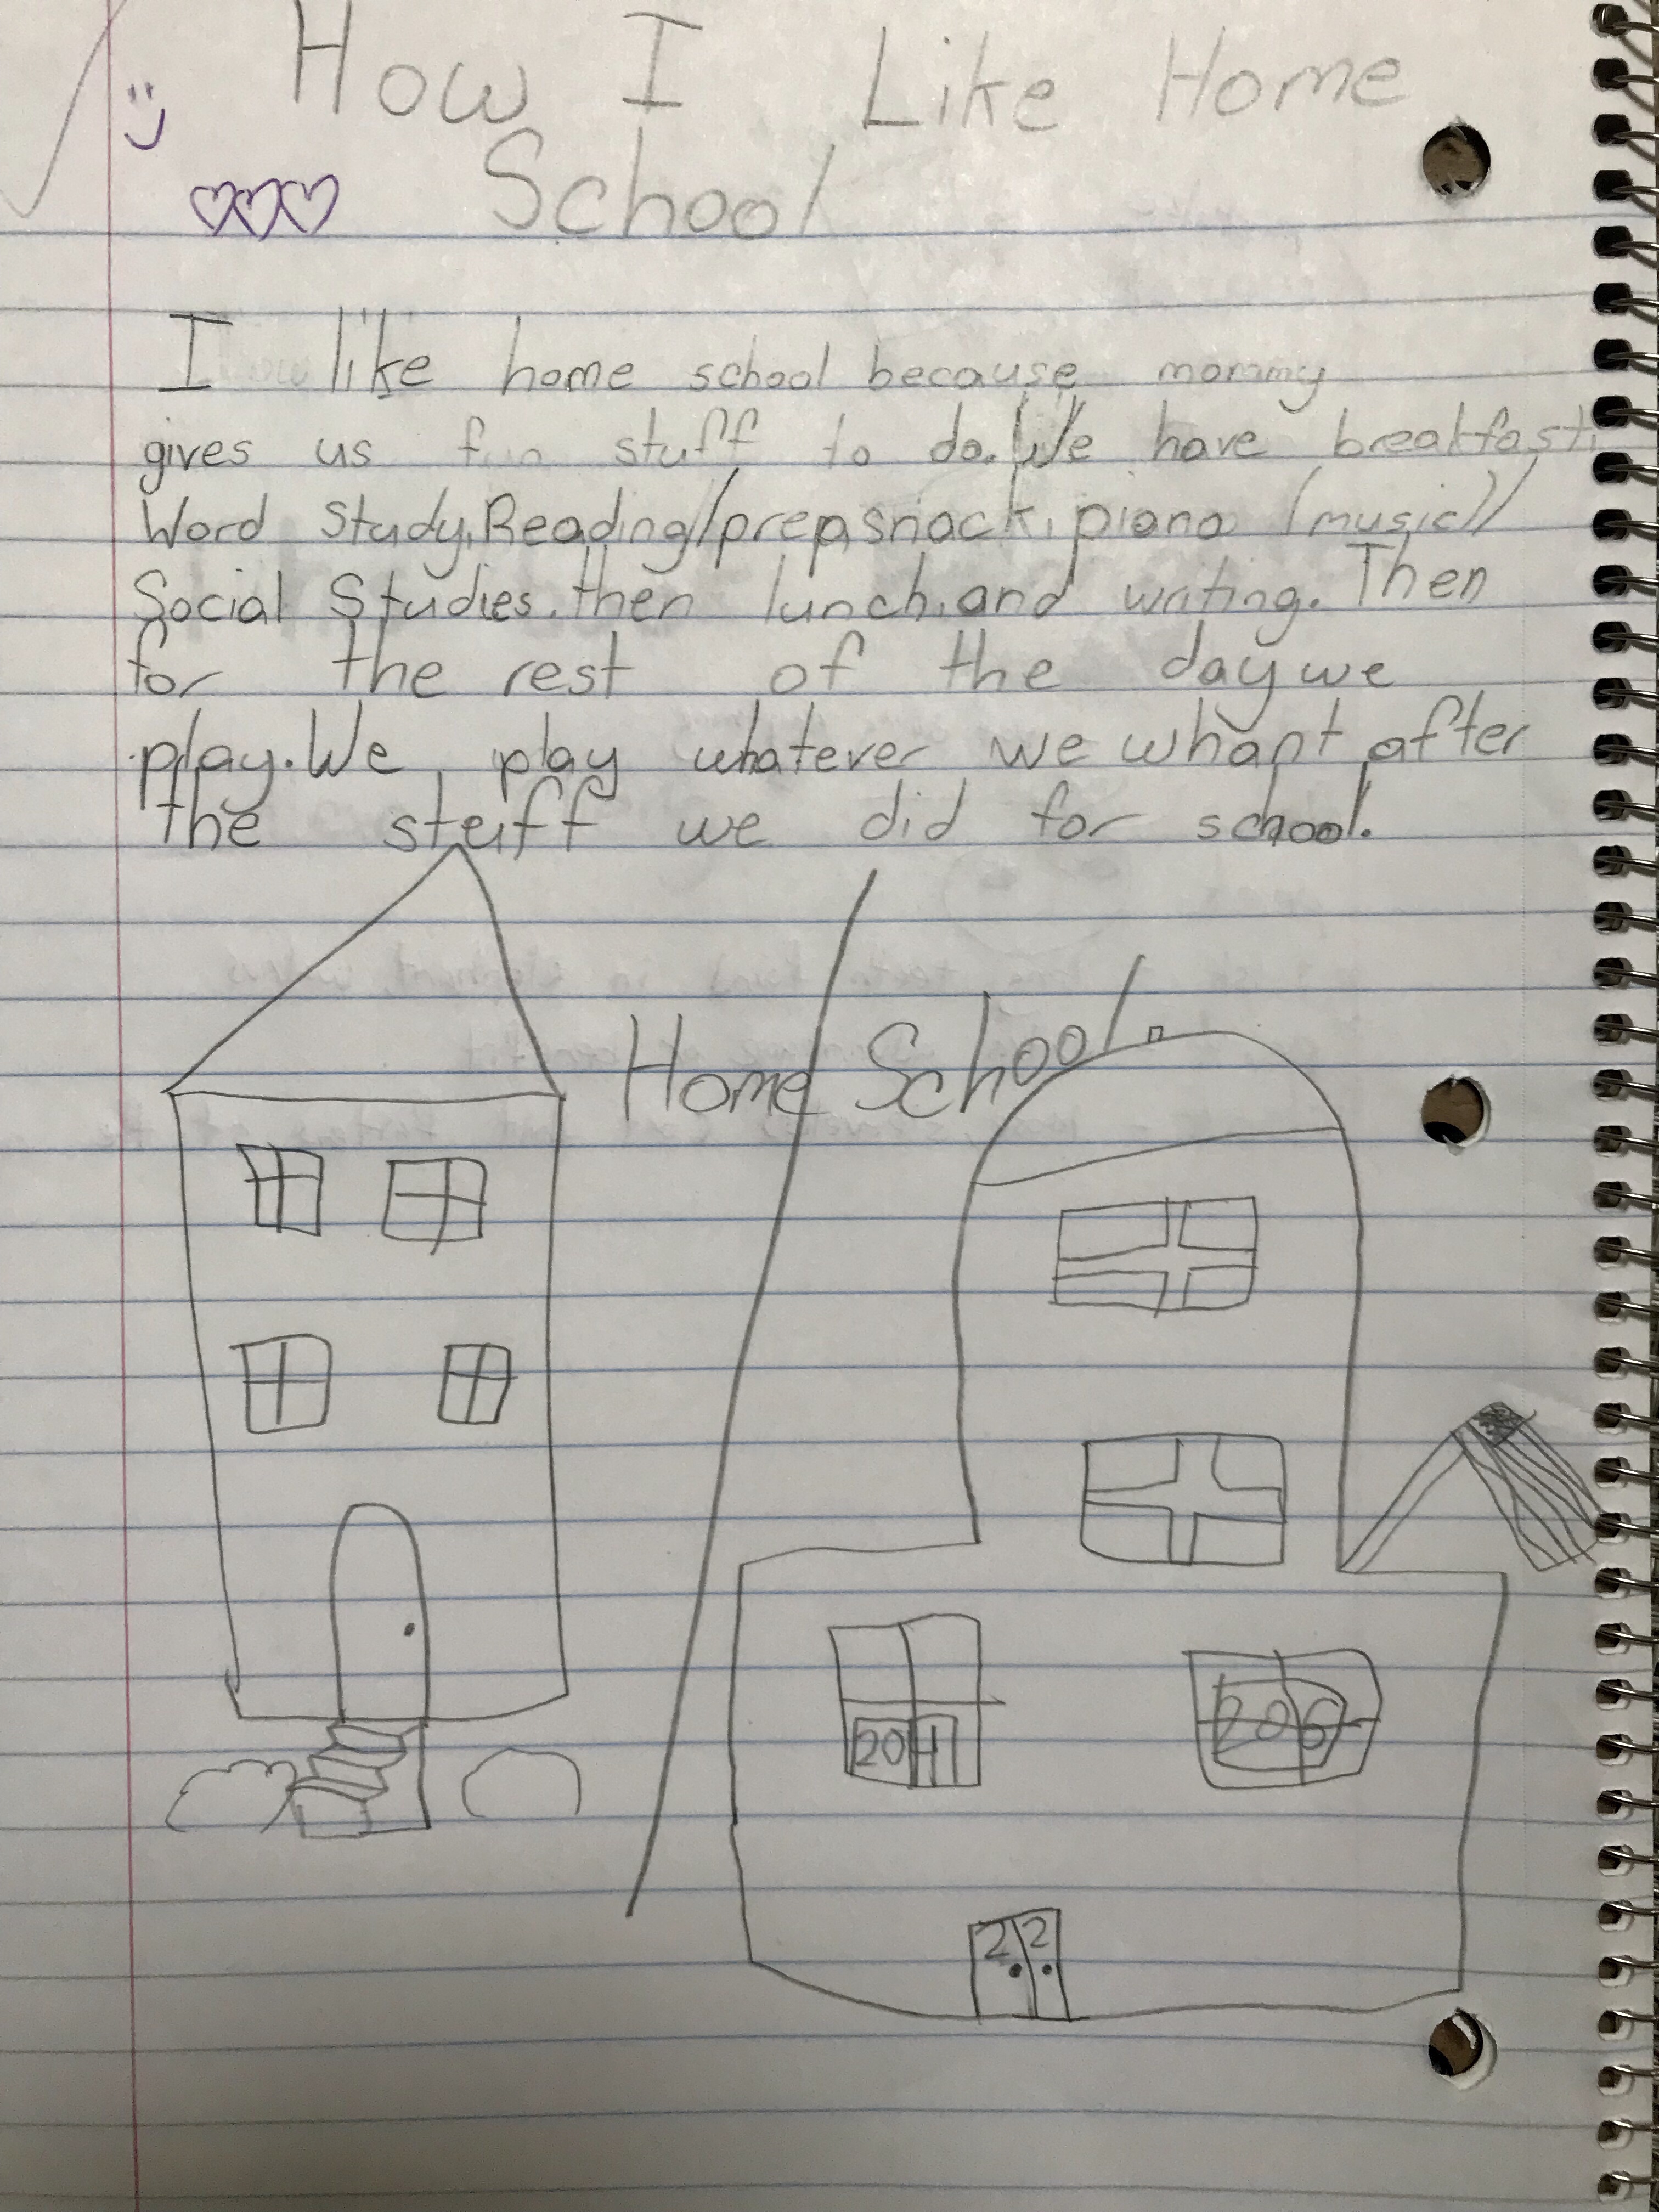 How I Like Home
School
I like home school because mommy
gives us fun stuff to do. We have breakfast,
Word Study, Reading/prep, snack, piano (music)/
Social Studies, then lunch, and writing. Then
for the rest of the day we
play. We play whatever we whant after
the stuff we did for school.
Home School
204
206
22